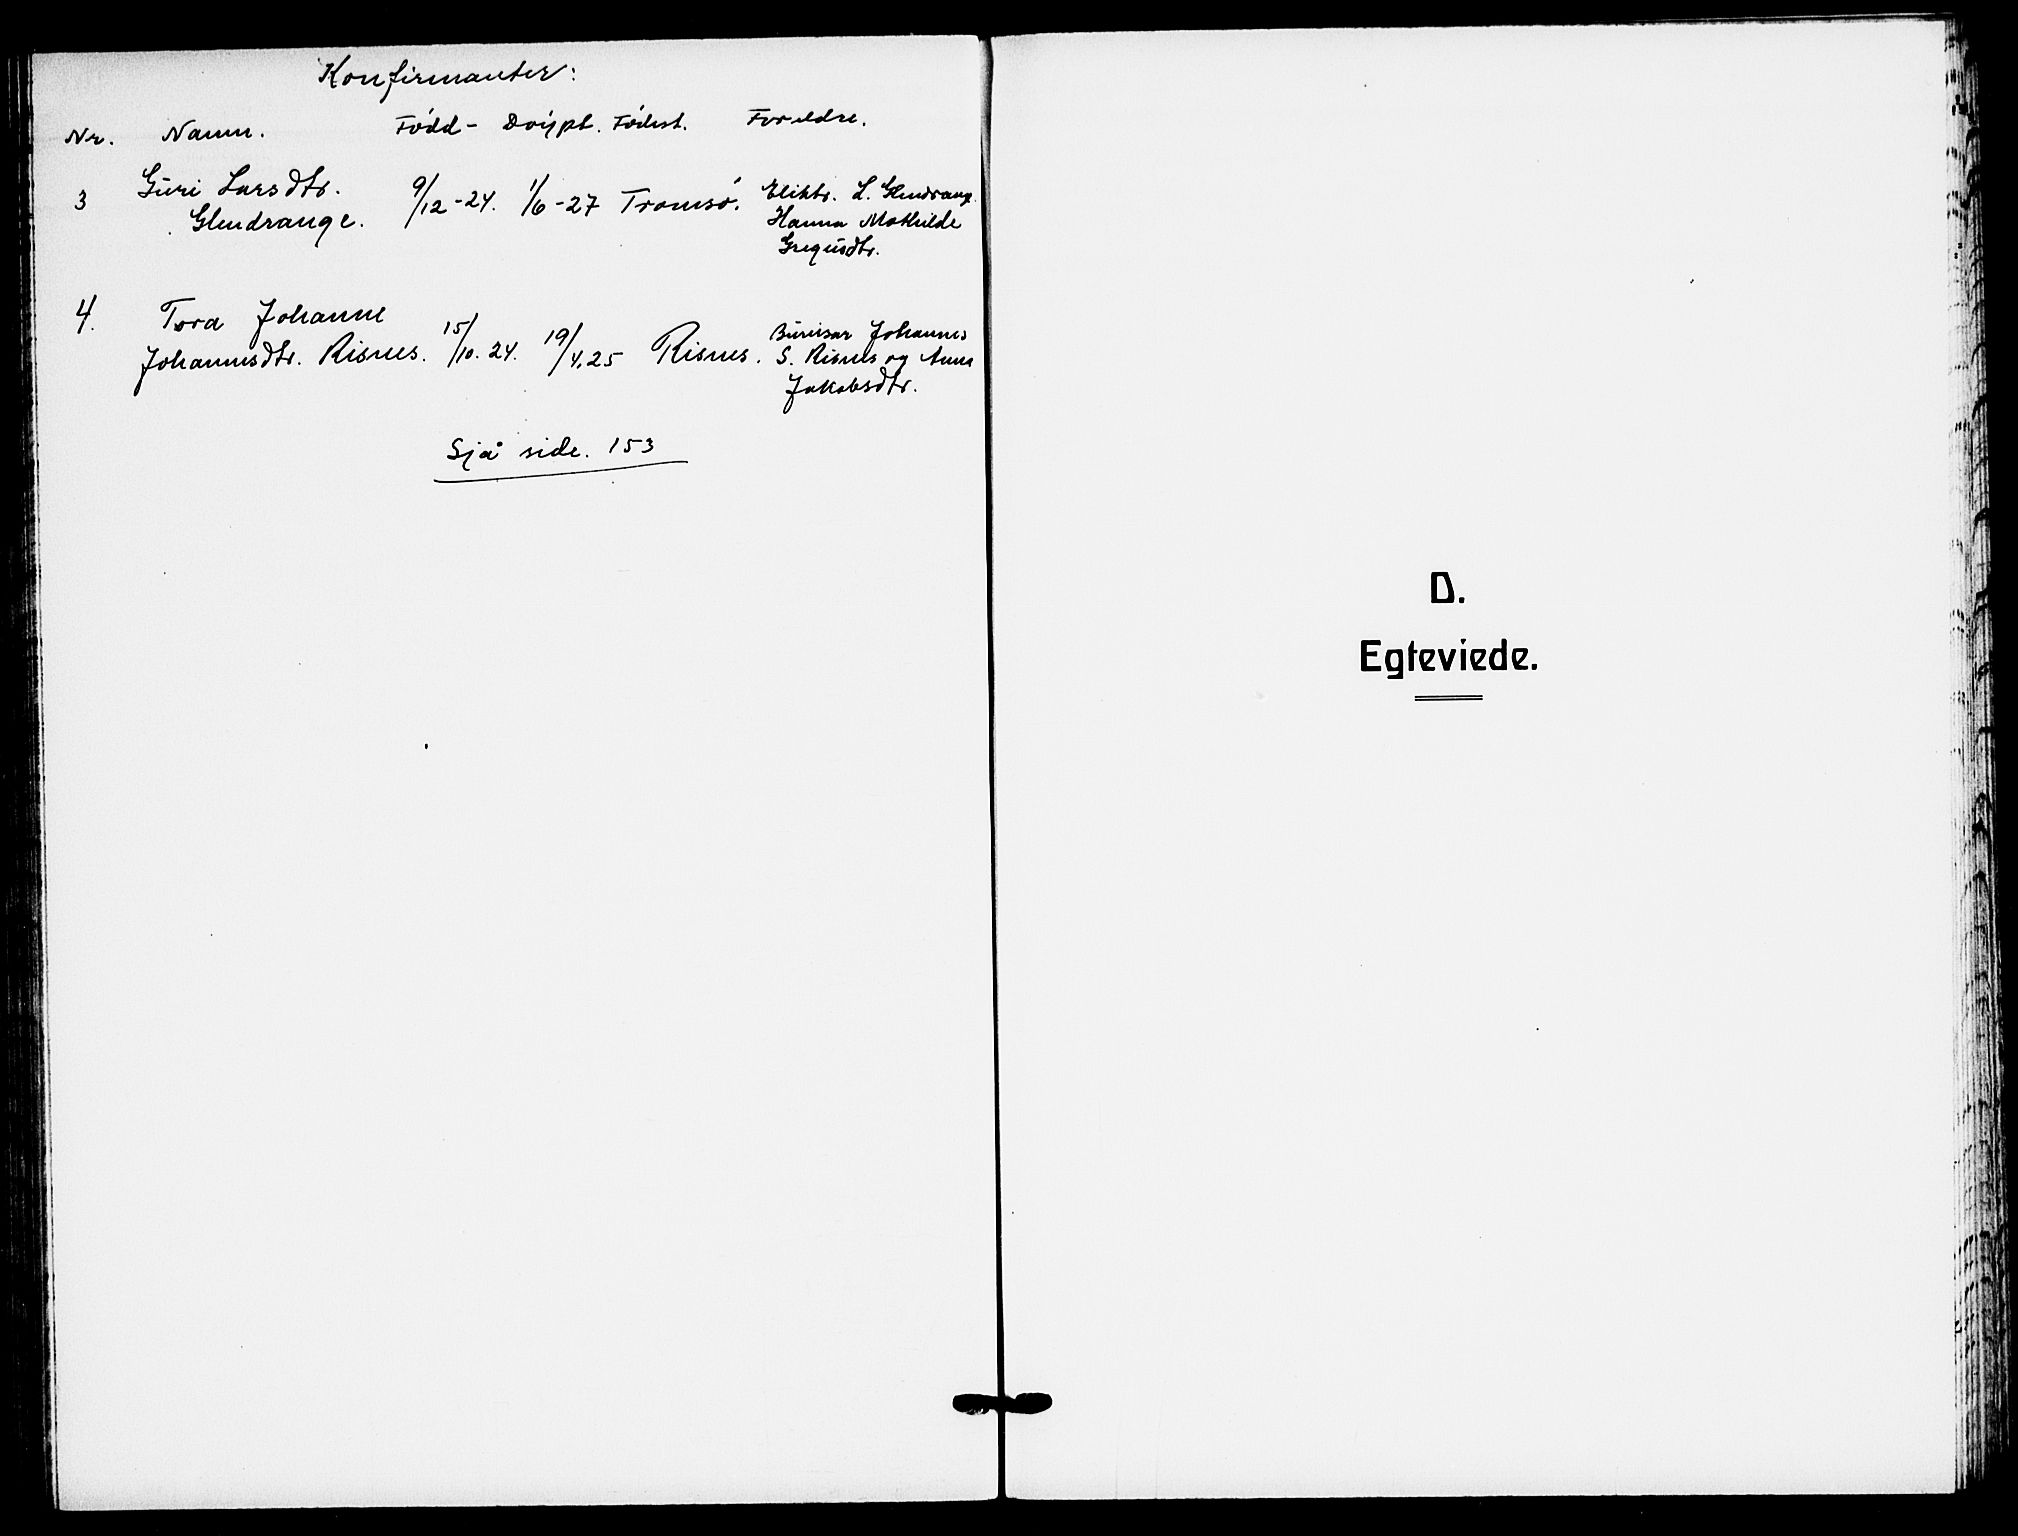 Konfirmanter:
Nr. Namn. Fødd- Døypt. Fødest. Foreldre.
3 Guri Larsdtr. Glendrange. 9/12-24. 1/6-27 Tromsø. Elektr. L. Glendrange.
Hanna Mathilde
Gregusdtr.
4. Tora Johanne
Johannesdtr. Risnes. 15/10.24. 19/4.25 Risnes. Bureisar Johannes
S. Risnes og Anna
Jakobsdtr.
Sjå side. 153
D.
Egteviede.